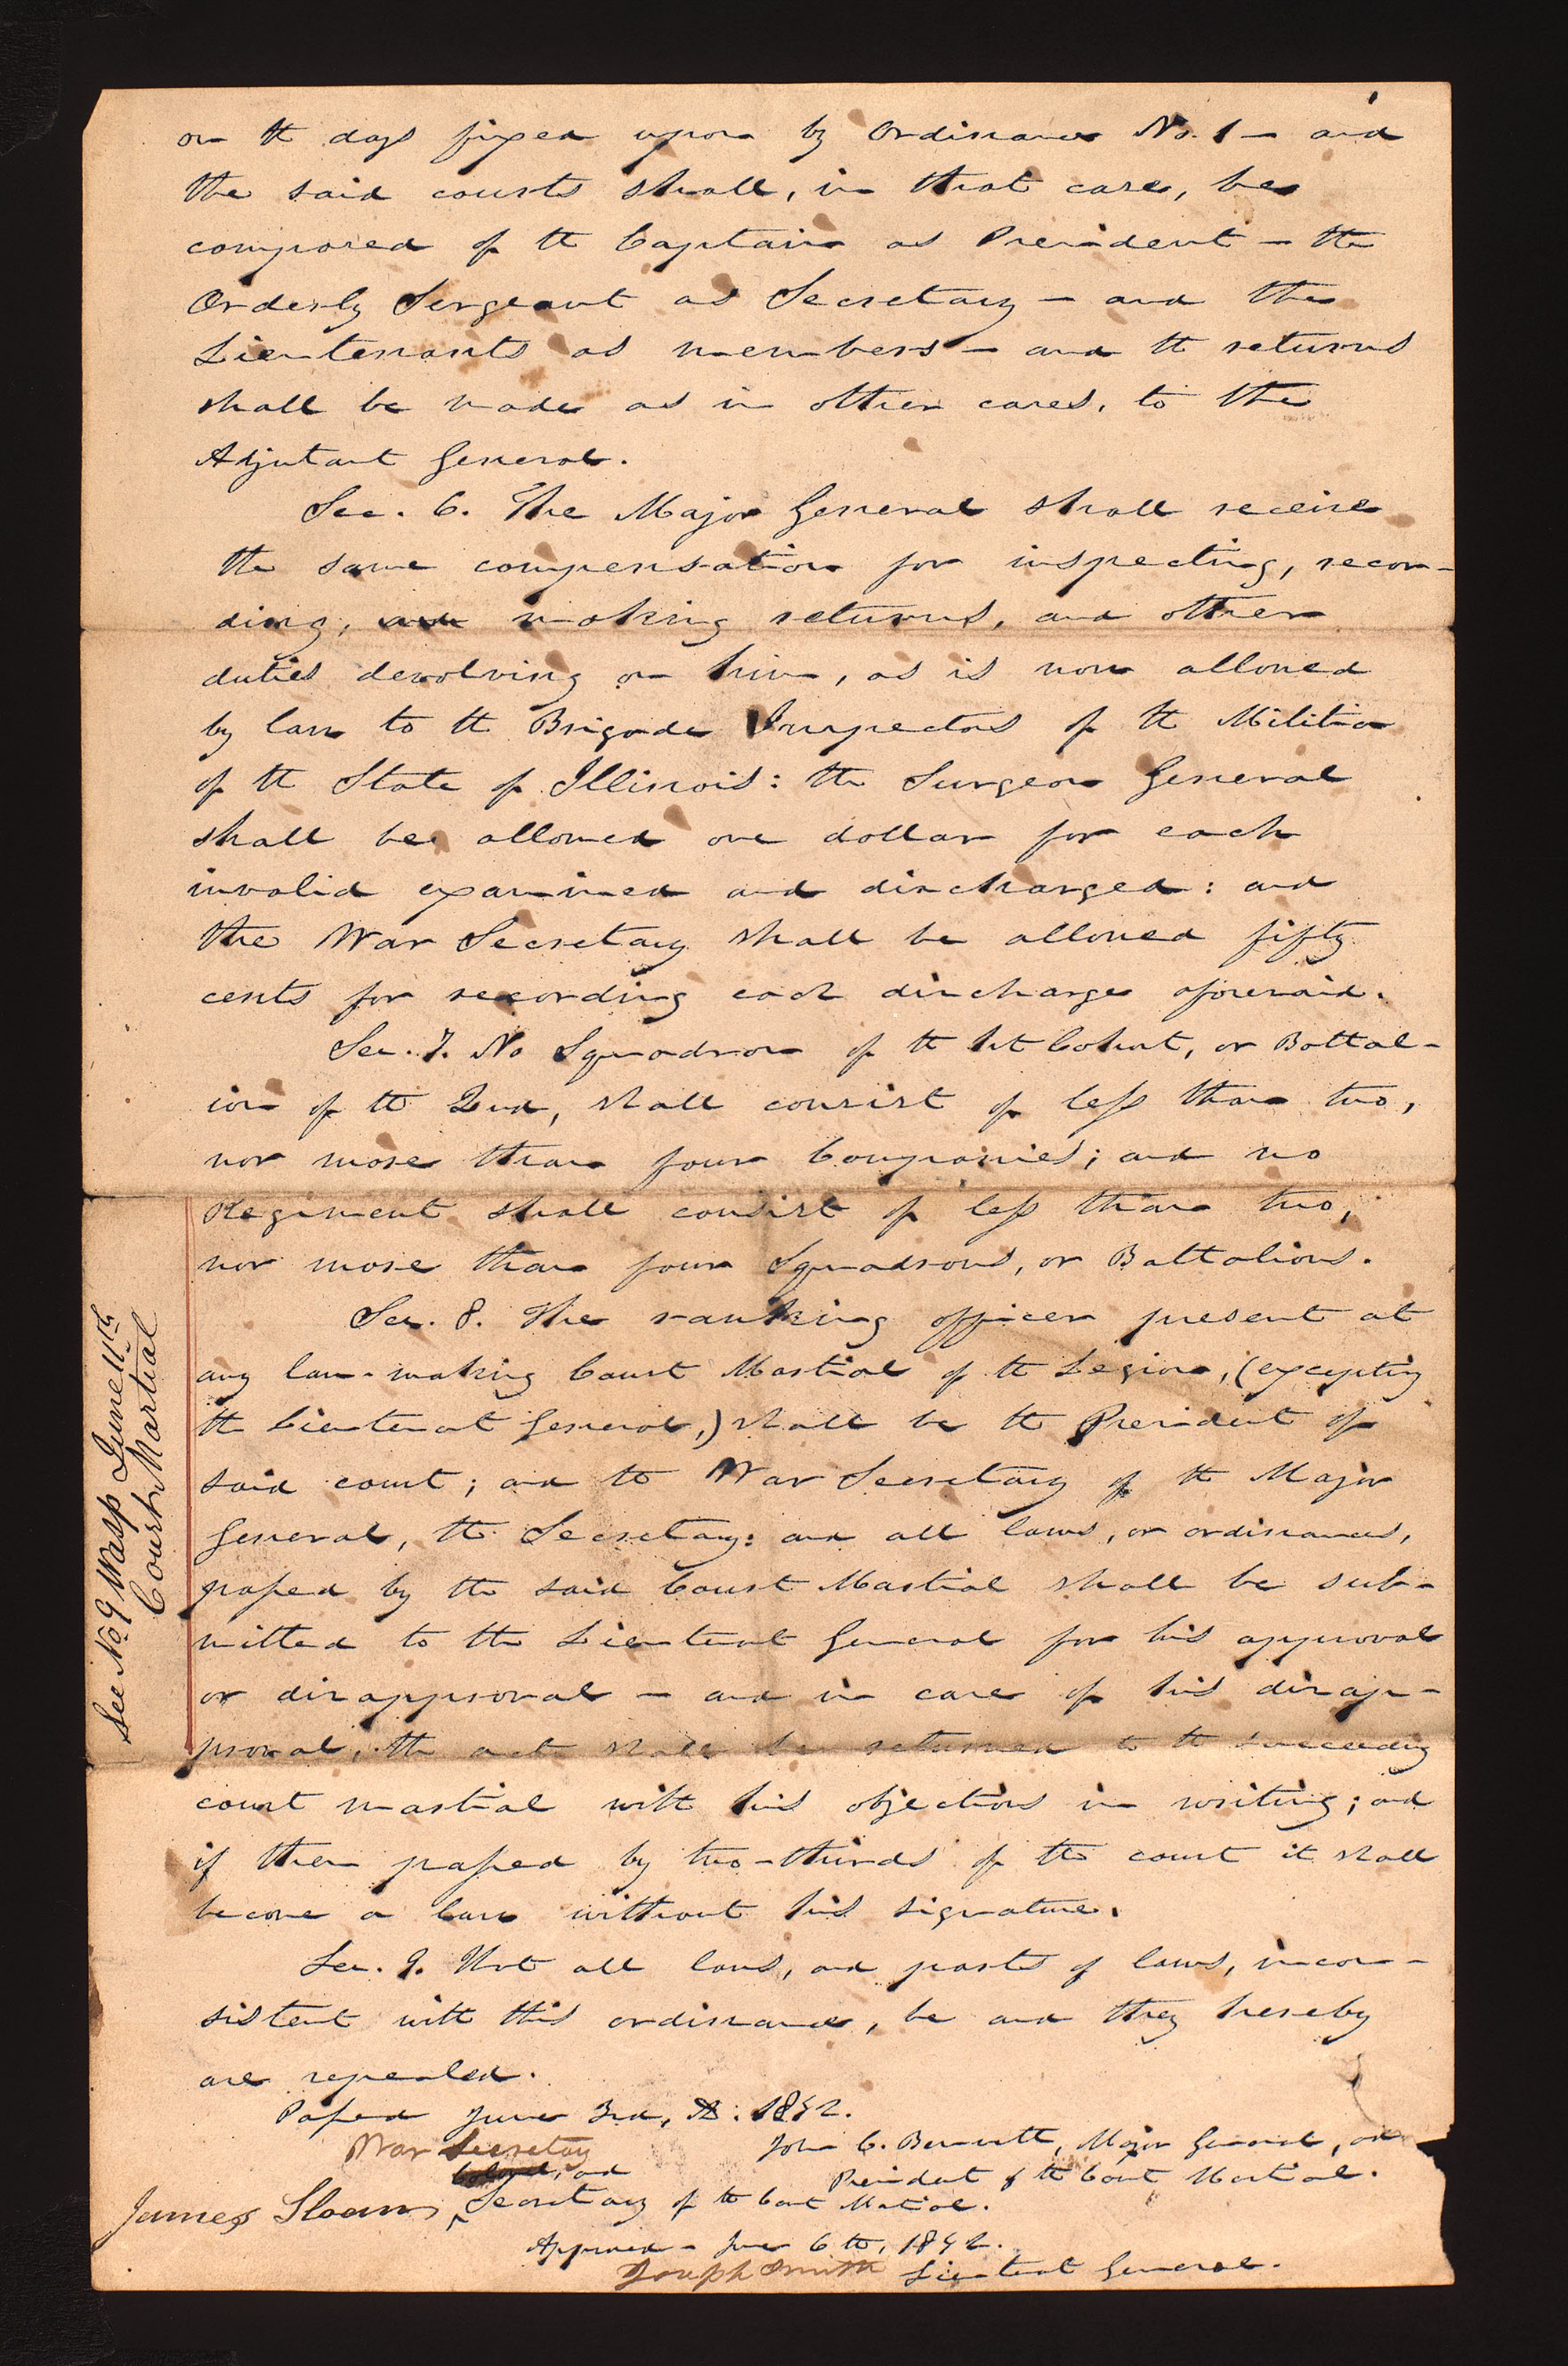 on the days fixed upon by Ordinance No. 1 — and
the said courts shall, in that case, be
composed of the Captain as President — the
Orderly Sergeant as Secretary — and the
Lieutenants as members — and the returns
shall be made as in other cases, to the
Adjutant General.
Sec. 6. The Major General shall receive
the same compensation for inspecting, recor-
ding, and making returns, and other
duties devolving on him, as is now allowed
by law to the Brigade Inspectors of the Militia
of the State of Illinois: the Surgeon General
shall be allowed one dollar for each
invalid examined and discharged: and
the War Secretary shall be allowed fifty
cents for recording each discharge aforesaid.
Sec. 7. No Squadron of the 1st Cohort, or Battal-
ion of the 2nd, shall consist of less than two,
nor more than four Companies; and no
Regiment shall consist of less than two,
nor more than four Squadrons, or Battalions.
Sec. 8. The ranking officer present at
any law-making Court Martial of the Legion, (excepting
the Lieutenant General,) shall be the President of
said court; and the War Secretary of the Major
General, the Secretary: and all laws, or ordinances,
passed by the said Court Martial shall be sub-
mitted to the Lieutenant General for his approval
or disapproval — and in case of his disap-
proval, the act shall be returned to the succeeding
court martial with his objections in writing; and
if then passed by two-thirds of the court it shall
become a law without his signature.
Sec. 9. That all laws, and parts of laws, incon-
sistent with this ordinance, be and they hereby
are repealed.
Passed June 3rd, AD: 1842.
John C. Bennett, Major General, and
President of the Court Martial.
War Secretary
Colonel, and
James Sloan, Secretary of the Court Martial.
Approved — June 6th, 1842.
Joseph Smith Lieutenant General.
See No 9 Wasp June 11th
Court Martial